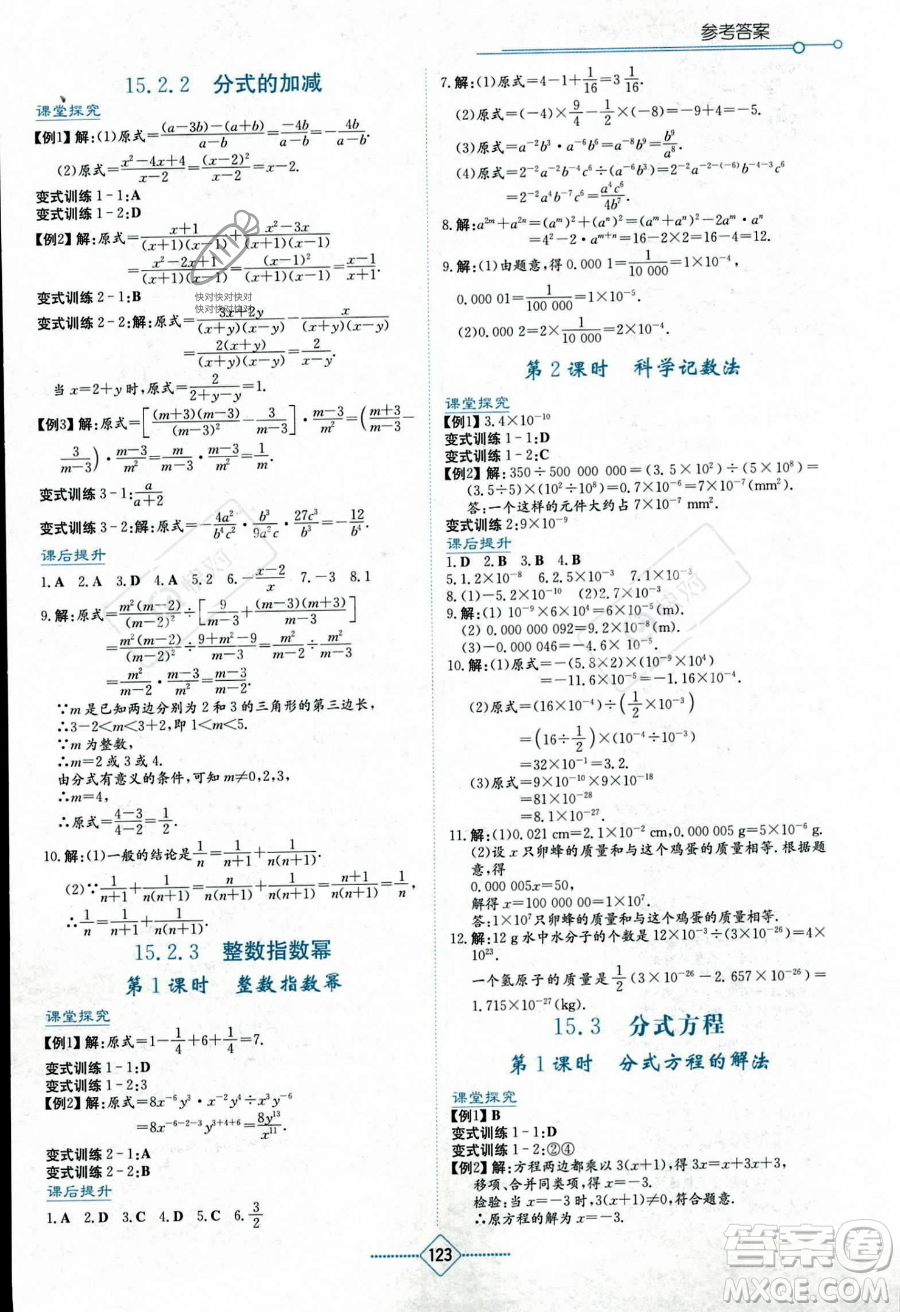 参考答案
15.2.2 分式的加减
课堂探究
【例1】解:(1)原式=\frac{(a-3b)-(a+b)}{a-b}=\frac{-4b}{a-b}=-\frac{4b}{a-b}.
(2)原式=\frac{x²-4x+4}{x-2}=\frac{(x-2)²}{x-2}=x-2.
变式训练1-1:A
变式训练1-2:D
【例2】解:原式=\frac{x+1}{(x+1)(x-1)}+\frac{x²-3x}{(x+1)(x-1)}
=\frac{x²-2x+1}{(x+1)(x-1)}=\frac{(x-1)²}{(x+1)(x-1)}=\frac{x-1}{x+1}.
变式训练2-1:B
快对快对快对
快对快对快对
变式训练2-2:解:原式=\frac{3x+2y}{(x+y)(x-y)}-\frac{x}{(x+y)(x-y)}
=\frac{2(x+y)}{(x+y)(x-y)}=\frac{2}{x-y}.
当x=2+y时,原式=\frac{2}{2+y-y}=1.
【例3】解:原式=[\frac{(m+3)(m-3)}{(m-3)²}-\frac{3}{m-3}]·\frac{m-3}{m²}=(\frac{m+3}{m-3}-
\frac{3}{m-3})·\frac{m-3}{m²}=\frac{m}{m-3}·\frac{m-3}{m²}=\frac{1}{m}.
变式训练3-1:\frac{a}{a+2}
变式训练3-2:解:原式=-\frac{4a²}{9b²c²}·\frac{b³}{9a²c}·\frac{27c³}{b³}=-\frac{12}{b²}.
课后提升
1.A 2.A 3.D 4.A 5.2 6.-\frac{x-2}{x} 7.-3 8.1
9.解:原式=\frac{m²(m-2)}{(m-2)²}÷[\frac{9}{m-3}+\frac{(m+3)(m-3)}{m-3}]
=\frac{m²(m-2)}{(m-2)²}÷\frac{9+m²-9}{m-3}=\frac{m²(m-2)}{(m-2)²}÷\frac{m²}{m-3}
=\frac{m²}{m-2}·\frac{m-3}{m²}=\frac{m-3}{m-2}.
∵m是已知两边分别为2和3的三角形的第三边长,
∴3-2<m<3+2,即1<m<5.
∵m为整数,
∴m=2或3或4.
由分式有意义的条件,可知m≠0,2,3,
∴m=4,
∴原式=\frac{4-3}{4-2}=\frac{1}{2}.
10.解:(1)一般的结论是\frac{1}{n}=\frac{1}{n+1}+\frac{1}{n(n+1)}.
(2)∵\frac{1}{n+1}+\frac{1}{n(n+1)}=\frac{n}{n(n+1)}+\frac{1}{n(n+1)}=\frac{n+1}{n(n+1)}=\frac{1}{n},
∴\frac{1}{n}=\frac{1}{n+1}+\frac{1}{n(n+1)}.
15.2.3 整数指数幂
第1课时 整数指数幂
课堂探究
【例1】解:原式=1-\frac{1}{4}+6+\frac{1}{4}=7.
变式训练1-1:D
变式训练1-2:3
【例2】解:原式=8x⁻⁶y³·x⁻²y⁴÷x³y⁻⁶
=8x⁻⁶⁻²⁻³y³⁺⁴⁺⁶=\frac{8y¹³}{x¹¹}.
变式训练2-1:A
变式训练2-2:B
课后提升
1.A 2.D 3.C 4.A 5.C 6.\frac{3}{2}
7.解:(1)原式=4-1+\frac{1}{16}=3\frac{1}{16}.
(2)原式=(-4)×\frac{9}{4}-\frac{1}{4}×(-8)=-9+4=-5.
(3)原式=a⁻²b³·a⁻⁶b⁶=a⁻⁸b⁹=\frac{b⁹}{a⁸}.
(4)原式=2⁻²a⁻²b⁻⁴c²÷a⁻⁶b³c⁻⁴=2⁻²a⁻²⁺⁶b⁻⁴⁻³c²⁺⁴=
2⁻²a⁴b⁻⁷c⁶=\frac{a⁴c⁶}{4b⁷}.
8.解:a²ᵐ+a²ⁿ=(aᵐ)²+(aⁿ)²=(aᵐ+aⁿ)²-2aᵐ·aⁿ
=4²-2·aᵐ⁺ⁿ=4²-2×4=8.
9.解:(1)由题意,得0.000 1=\frac{1}{10 000}=1×10⁻⁴,
0.000 01=\frac{1}{100 000}=1×10⁻⁵.
(2)0.000 2=2×\frac{1}{10 000}=2×10⁻⁴.
第2课时 科学记数法
课堂探究
【例1】3.4×10⁻¹⁰
变式训练1-1:D
变式训练1-2:C
【例2】解:350÷500÷10⁶=(3.5×10²)÷(5×10⁸)=
(3.5÷5)×(10²÷10⁸)=0.7×10⁻⁶=7×10⁻⁷(mm²).
答:一个这样的元件大约占7×10⁻⁷ mm².
变式训练2:9×10⁻⁹
课后提升
1.D 2.B 3.B 4.B
5.1.2×10⁻⁸ 6.1.2×10⁻⁵ 7.1×10⁻³
8.(1)-5.2×10⁻¹⁰ (2)2.7×10⁻⁵
9.解:(1)10⁻⁹×6×10³=6×10⁻⁶(m).
(2)0.000 000 092=9.2×10⁻⁸(m).
(3)-0.000 046=-4.6×10⁻⁵.
10.解:(1)原式=-(5.8×2)×(10⁻⁶×10⁻²)
=-11.6×10⁻⁸=-1.16×10⁻⁷.
(2)原式=(16×10⁻⁴)÷(\frac{1}{2}×10⁻³)
=(16÷\frac{1}{2})×(10⁻⁴÷10⁻³)
=32×10⁻¹=3.2.
(3)原式=9×10⁻¹⁰×9×10⁻¹⁸
=81×10⁻²⁸
=8.1×10⁻²⁷.
11.解:(1)0.021 cm=2.1×10⁻⁴ m,0.000 005 g=5×10⁻⁶ g.
(2)设x只卵蜂的质量和与这个鸡蛋的质量相等,由题
意,得
0.000 005x=50,
解得x=10 000 000=1×10⁷.
答:1×10⁷只卵蜂的质量和与这个鸡蛋的质量相等.
12.解:12 g水中水分子的个数是12÷(3×10⁻²³)=4×
10²³.
一个氢原子的质量是\frac{1}{2}(3×10⁻²⁶-2.657×10⁻²⁶)=
1.715×10⁻²⁷(kg).
15.3 分式方程
第1课时 分式方程的解法
课堂探究
【例1】B
变式训练1-1:D
变式训练1-2:②④
【例2】解:方程两边都乘以3(x+1),得3x=2x+3(x+1),
移项、合并同类项,得x=-\frac{3}{2}.
123
答案圈
MXQE.COM